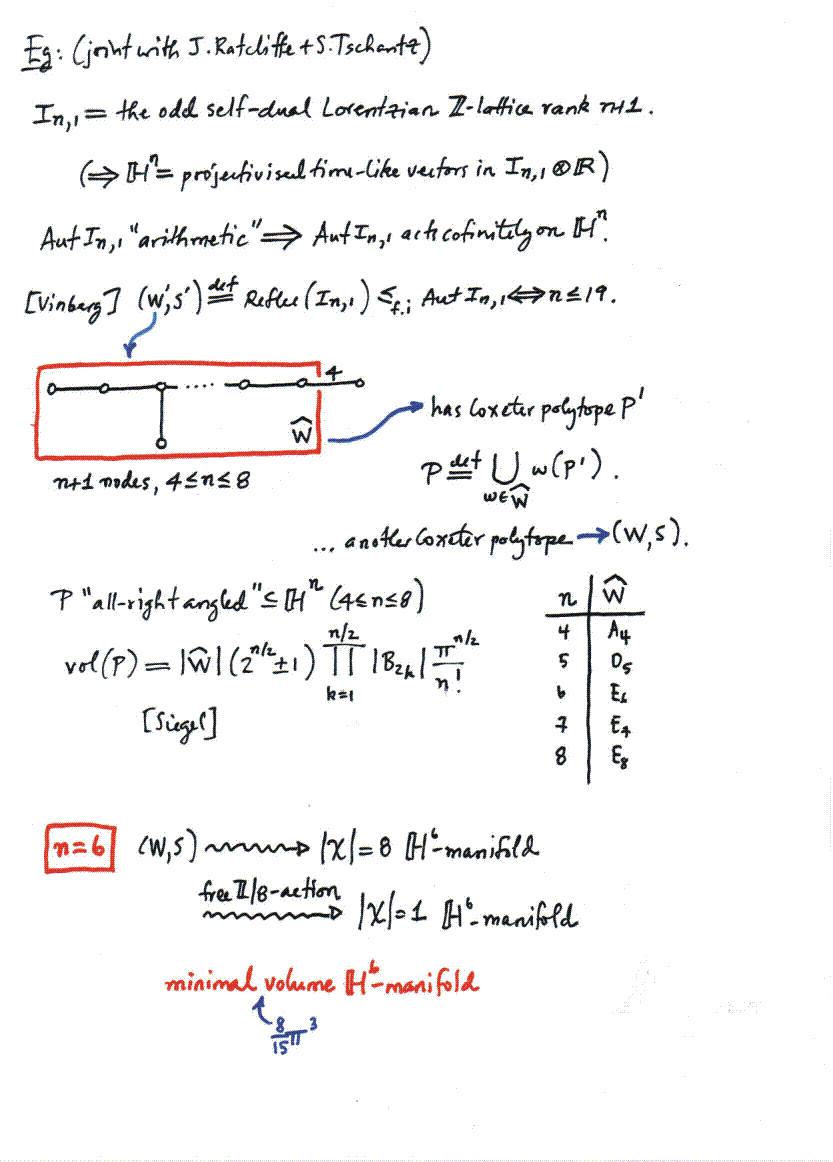 Eg: (joint with J. Ratcliffe + S. Tschantz)
I_{n,1} = the odd self-dual Lorentzian ℤ-lattice rank n+1.
(⇒ ℍ^n = projectivised time-like vectors in I_{n,1} ⊗ ℝ)
Aut I_{n,1} "arithmetic" ⇒ Aut I_{n,1} acts cofinitely on ℍ^n.
[Vinberg] (W',S') def= Reflec(I_{n,1}) ≤_{f.i} Aut I_{n,1} ⇔ n ≤ 19.
4
Ŵ
has Coxeter polytope P'
n+1 nodes, 4 ≤ n ≤ 8
P def= ⋃_{w∈Ŵ} w(P').
... another Coxeter polytope → (W,S).
P "all-right angled" ⊆ ℍ^n (4 ≤ n ≤ 8)
vol(P) = |Ŵ| (2^{n/2} ± 1) ∏_{k=1}^{n/2} |B_{2k}| π^{n/2}/n!
[Siegel]
n Ŵ
4 A_4
5 D_5
6 E_6
7 E_7
8 E_8
n=6 (W,S) ⇝ |χ| = 8 ℍ^6-manifold
free ℤ/8-action
⇝ |χ| = 1 ℍ^6-manifold
minimal volume ℍ^6-manifold
8/15 π^3